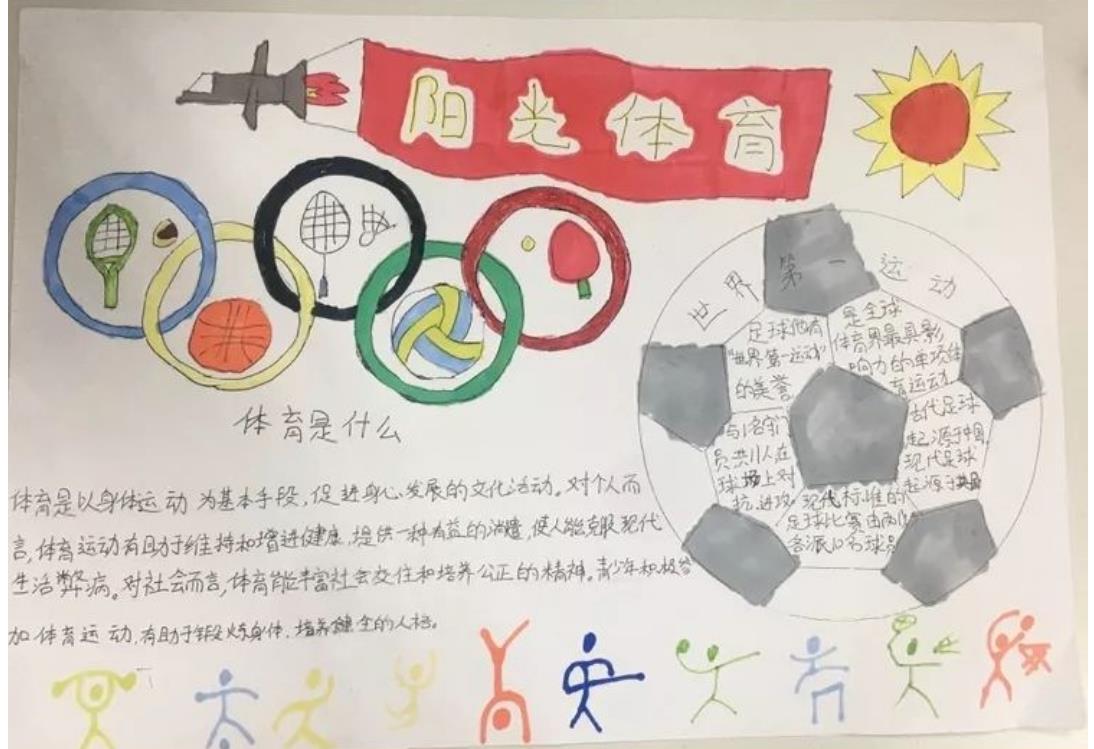 阳光体育
体育是什么
体育是以身体运动为基本手段,促进身心发展的文化活动。对个人而
言,体育运动有且助于维持和增进健康,提供一种有益的消遣,使人能克服现代
生活弊病。对社会而言,体育能丰富社会交往和培养公正的精神。青少年积极参
加体育运动,有助于锻炼身体,培养健全的人格。
世界第一运动
足球他有
"世界第一运动"
的美誉
是全球
体育界最具影
响力的单项体
育运动
古代足球
起源于中国,
现代足球
起源于英国
现代标准的
足球比赛由两队
各派10名球员
与1名守门
员共11人在
球场上对
抗、进攻